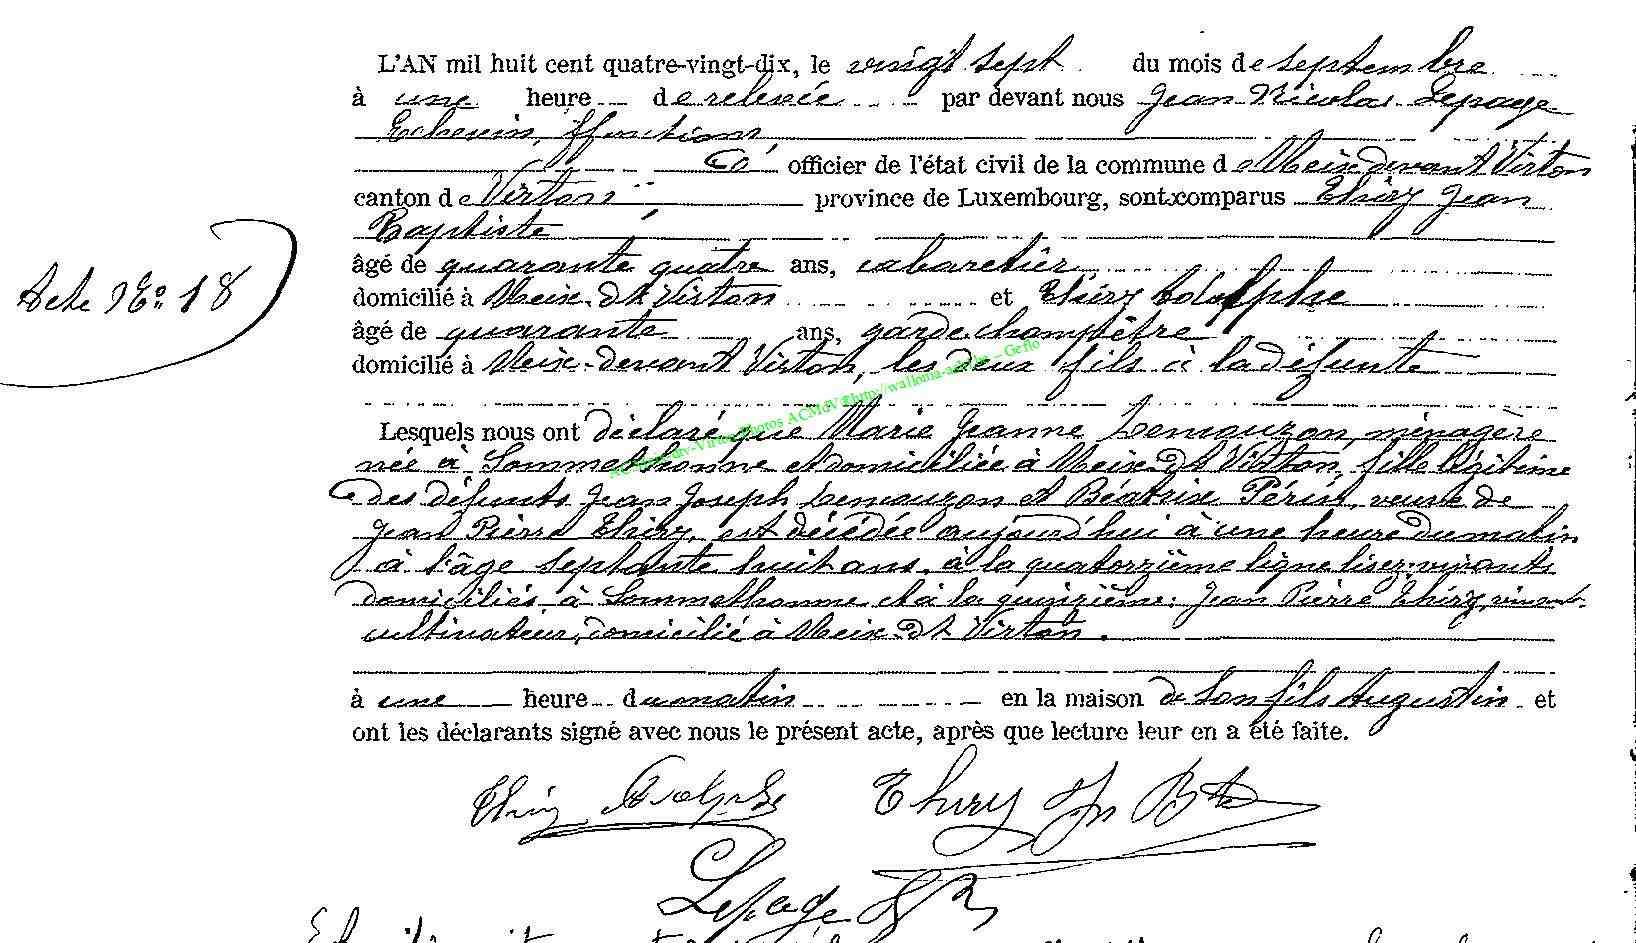 L'AN mil huit cent quatre-vingt-dix, le vingt sept du mois de septembre
à une heure de relevée par devant nous Jean Nicolas Lepage
Echevin, ffonctions
officier de l'état civil de la commune de Meix devant Virton
canton de Virton, province de Luxembourg, sont comparus Thiry Jean
Baptiste
âgé de quarante quatre ans, cabaretier
Acte No. 18
domicilié à Meix-dt Virton et Thiry Adolphe
âgé de quarante ans, garde champêtre
domicilié à Meix-devant Virton, les deux fils à la défunte
Virton Photos ACMdV http://wallonia-asbl.be - Geflo
Lesquels nous ont déclaré que Marie Jeanne Lemouzon, ménagère
née à Sommethonne et domiciliée à Meix-dt Virton, fille légitime
des défunts Jean Joseph Lemouzon et Béatrix Périn, veuve de
Jean Pierre Thiry, est décédée aujourd'hui à une heure du matin
à l'âge septante huit ans, à la quatorzième ligne lisez: vivants
domiciliés à Sommethonne et à la quinzième: Jean Pierre Thiry, vivant
cultivateur, domicilié à Meix-dt Virton.
à une heure du matin en la maison de son fils Augustin et
ont les déclarants signé avec nous le présent acte, après que lecture leur en a été faite.
Thiry Adolphe Thiry Jn Bte
Lepage JN